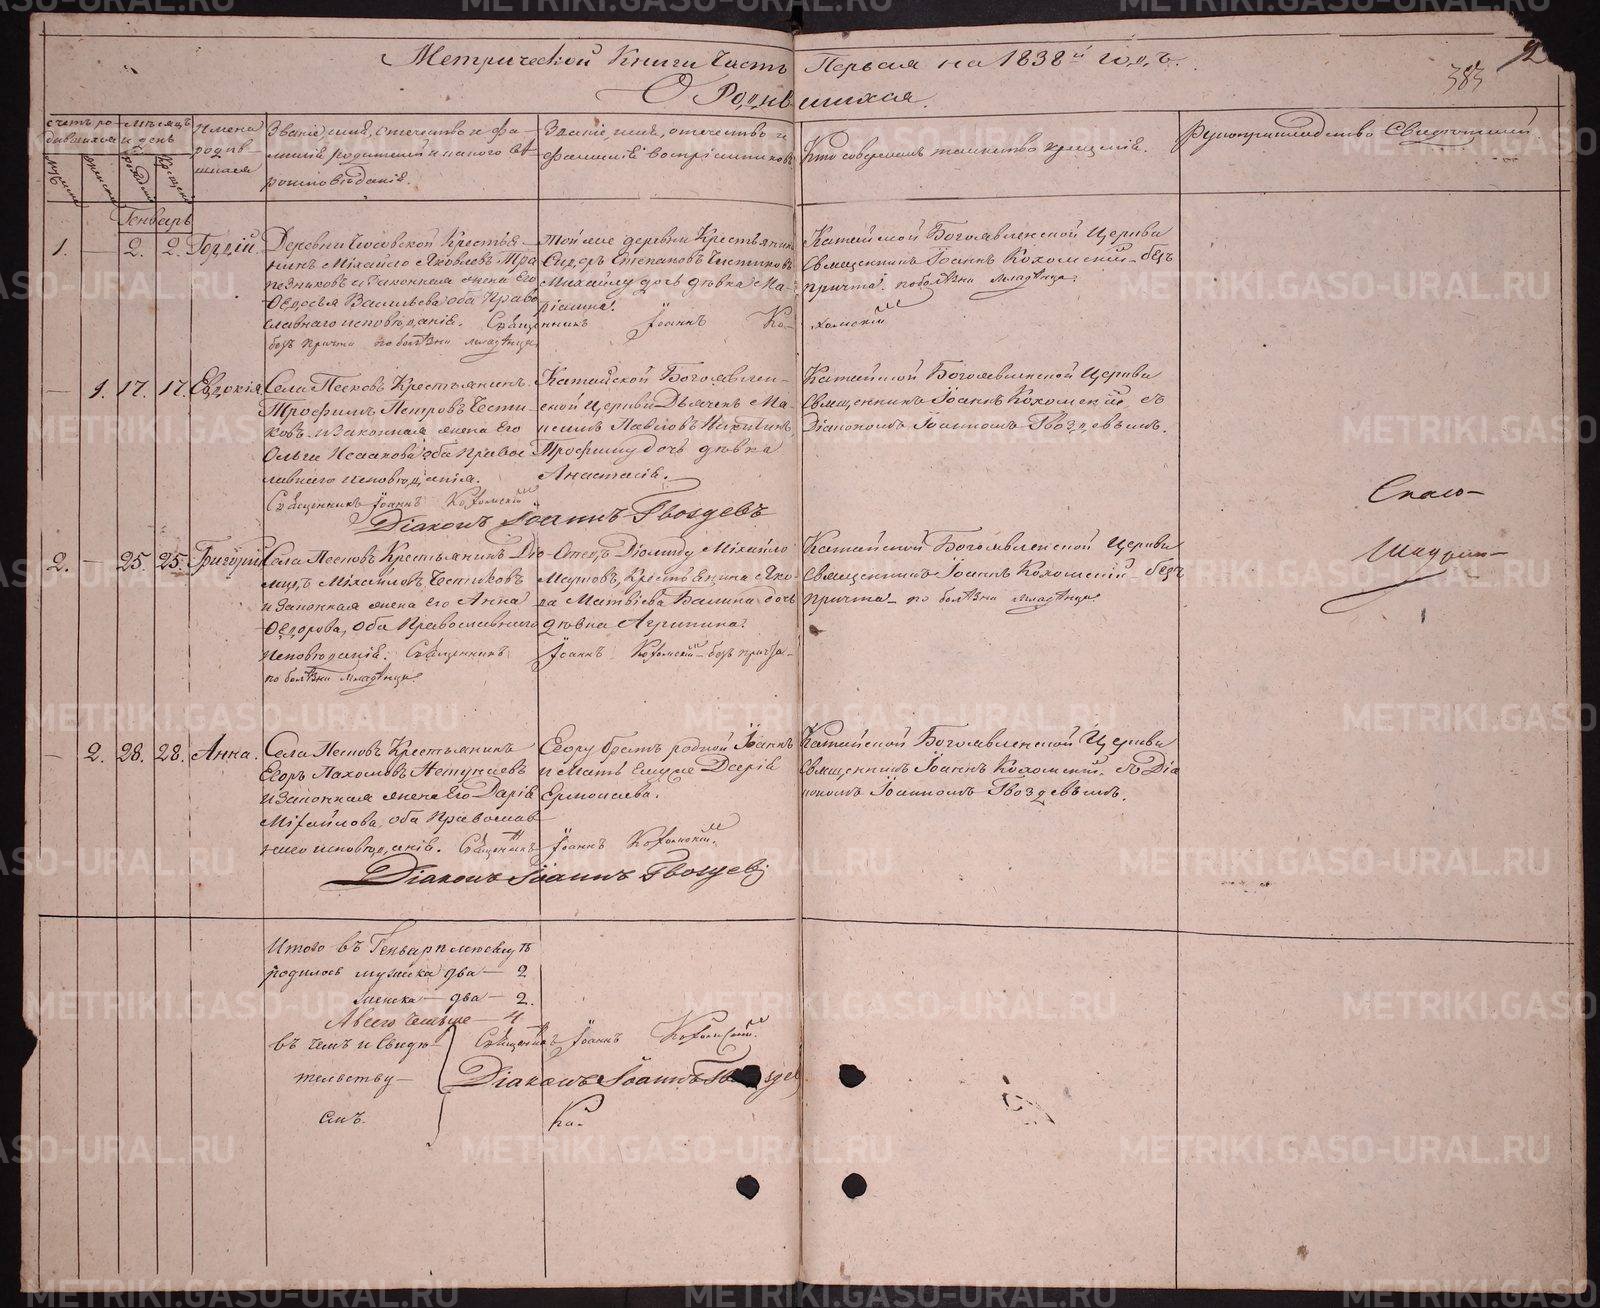 Метрической Книги Часть Первая на 1838й годъ.
383
О Родившихся.
счетъ ро-
дившихся
мѣсяцъ
и день
Имена
родив-
шихся
Званіе, имя, отечество и фа-
милія родителей и какого вѣ-
роисповѣданія.
Званіе, имя, отечество и
фамилія воспріемниковъ
Кто совершалъ таинство крещенія.
Рукоприкладство Свидетелей
Генварь
1. — 2. 2. Гордій.
Деревни Чусовской Крестья-
нинъ Михайло Яковлевъ
и законная жена Его
Ѳедосья Васильева оба Право
славнаго исповѣданія. Священникъ Іоаннъ Ко-
хомскій
безъ причта по болѣзни младенца.
Той же деревни Крестьянинъ
Сидоръ Степановъ Чистиковъ
Михайлу дочь дѣвка Ма-
ріанна.
Катайской Богоявленской Церкви
Священникъ Іоаннъ Кохомскій безъ
причта. по болѣзни младенца.
— 1. 17. 17. Евдокія
Села Песковъ Крестьянинъ
Трофимъ Петровъ Чисти-
ковъ и законная жена Его
Ольга Исаакова оба Правос
лавнаго исповѣданія.
Священникъ Іоаннъ Кохомскій.
Діаконъ Іоаннъ Гвоздевъ
Катайской Богоявлен-
ской Церкви Дьячекъ Ма-
ксимъ Павловъ Никитинъ,
Трофиму дочь дѣвка
Анастасія.
Катайской Богоявленской Церкви
Священникъ Іоаннъ Кохомскій съ
Діакономъ Іоанномъ Гвоздевымъ.
2. — 25. 25. Григорій
Села Песковъ Крестьянинъ Діо
мидъ Михайловъ Чистиковъ
и Законная жена Его Анна
Ѳедорова, оба Православнаго
Исповѣданія. Священникъ Іоаннъ Кохомскій безъ причта
по болѣзни младенца.
Отецъ Діомиду Михайло
Марковъ, Крестьянина Яко-
ва Матвѣева Балина дочь
дѣвка Агрипина.
Катайской Богоявленской Церкви
Священникъ Іоаннъ Кохомскій безъ
причта по болѣзни младенца.
Спасо-
— 2. 28. 28. Анна.
Села Песковъ Крестьянинъ
Егоръ Пахомовъ
и Законная жена Его Дарія
Михайлова, оба Православ
наго исповѣданія. Священникъ Іоаннъ Кохомскій.
Діаконъ Іоаннъ Гвоздевъ
Егору братъ родной Іоаннъ
и Мать Дарія
Ермолаева.
Катайской Богоявленской Церкви
Священникъ Іоаннъ Кохомскій. съ Діа
кономъ Іоанномъ Гвоздевымъ.
Итого въ Генварѣ мѣсяцѣ
родилось мужеска два — 2
женска — два — 2.
А всего четыре — 4
въ чемъ и Свидѣ-
тельству-
емъ.
Священникъ Іоаннъ Кохомскій.
Діаконъ Іоаннъ Гвоздевъ
Ка-
METRIKI.GASO-URAL.RU